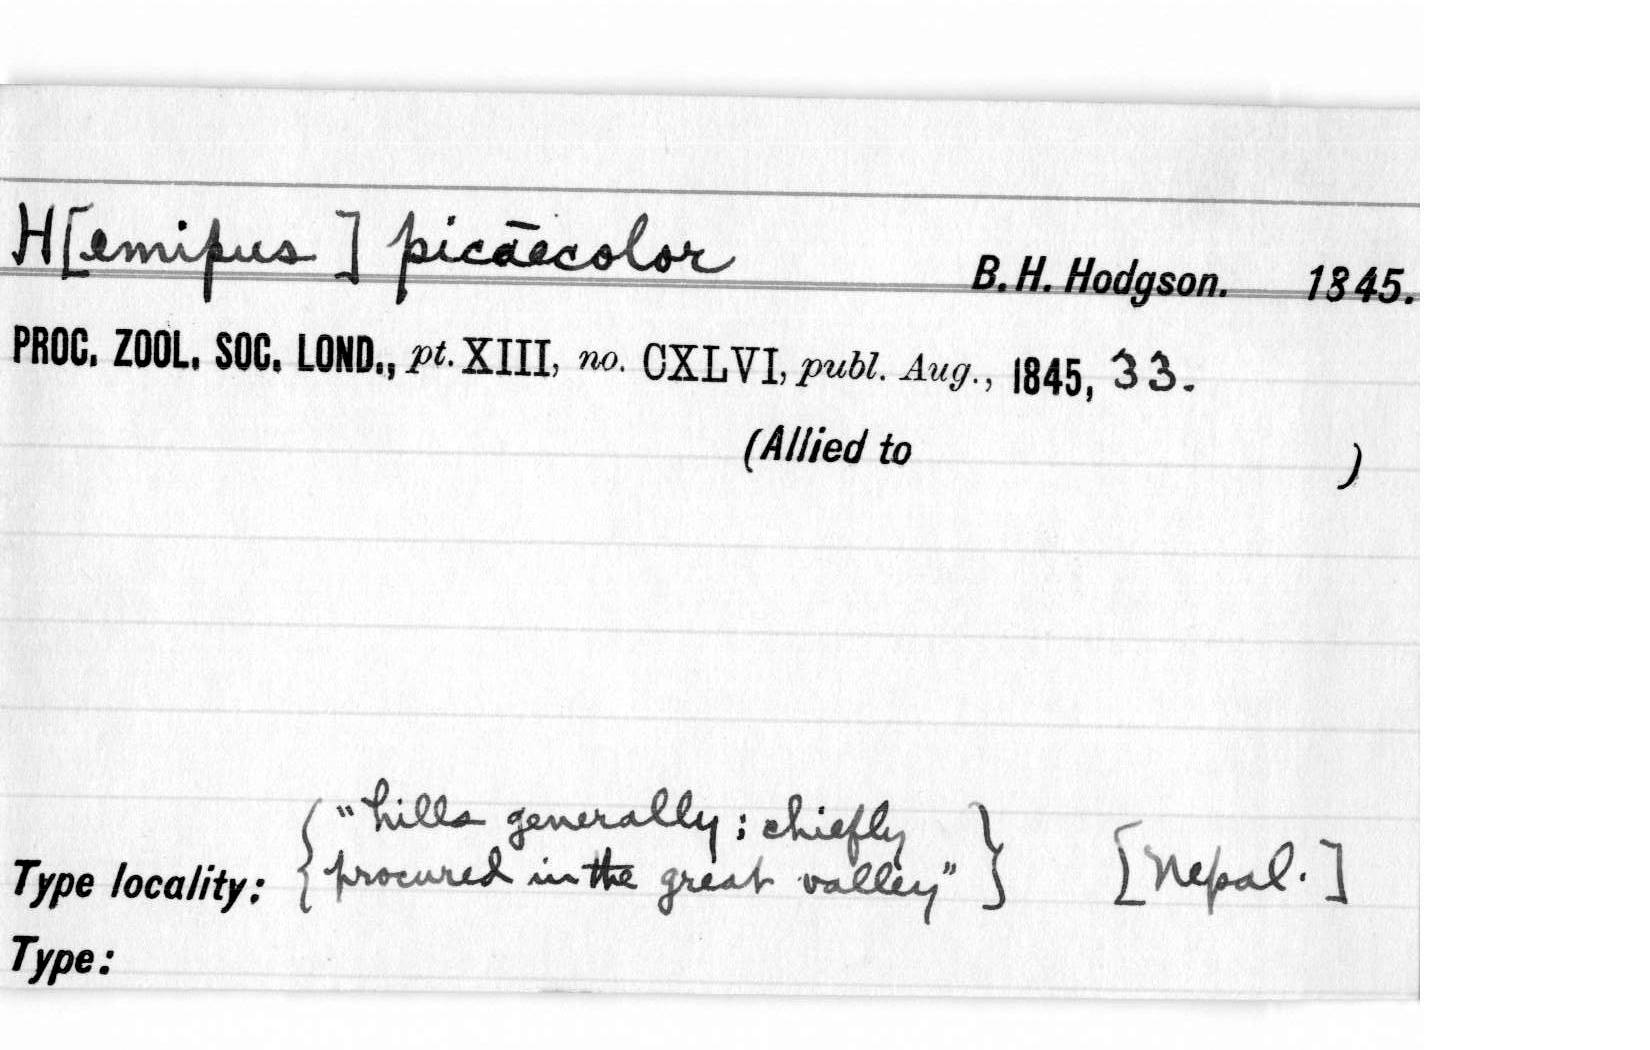 H[emipus] picāecolor B. H. Hodgson. 1845.
PROC. ZOOL. SOC. LOND., pt. XIII, no. CXLVI, publ. Aug., 1845, 33.
(Allied to )
{"hills generally; chiefly
Type locality: procured in the great valley"} [Nepal.]
Type: